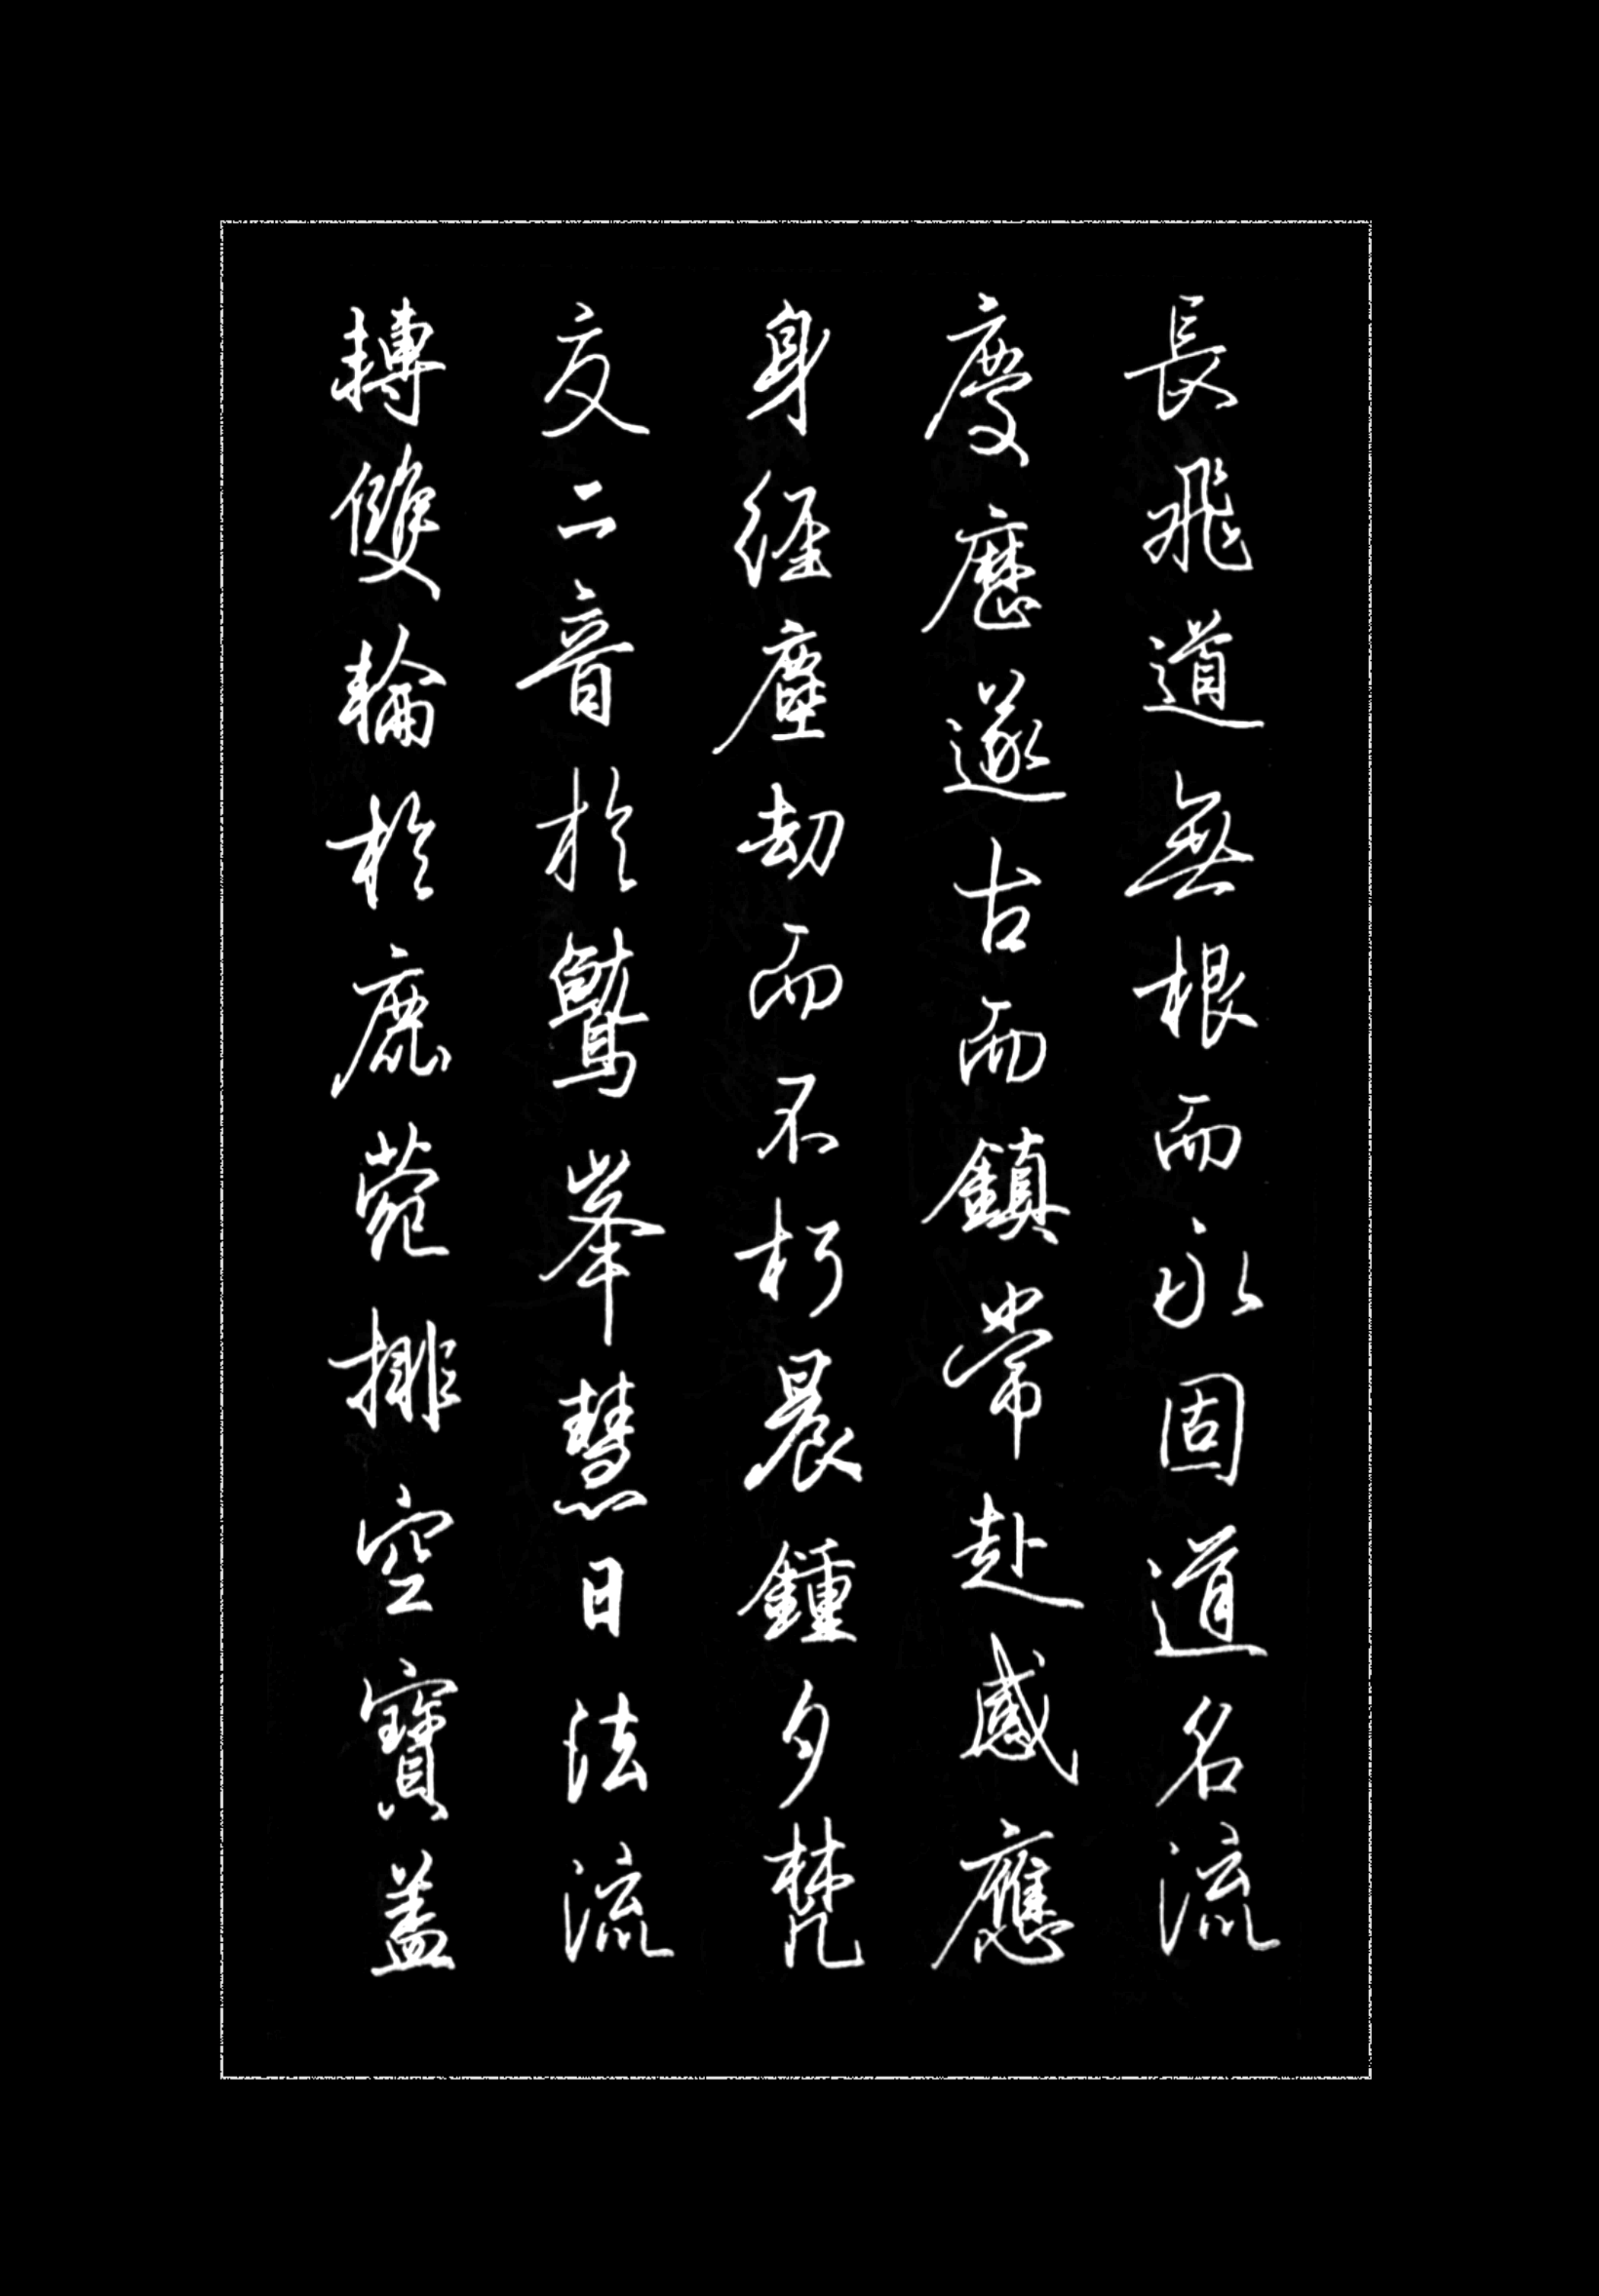 長飛道無根而永固道名流
慶歷遂古而鎮常赴感應
身經塵劫而不朽晨鍾夕梵
交二音於鷲峯慧日法流
轉雙輪於鹿菀排空寶盖